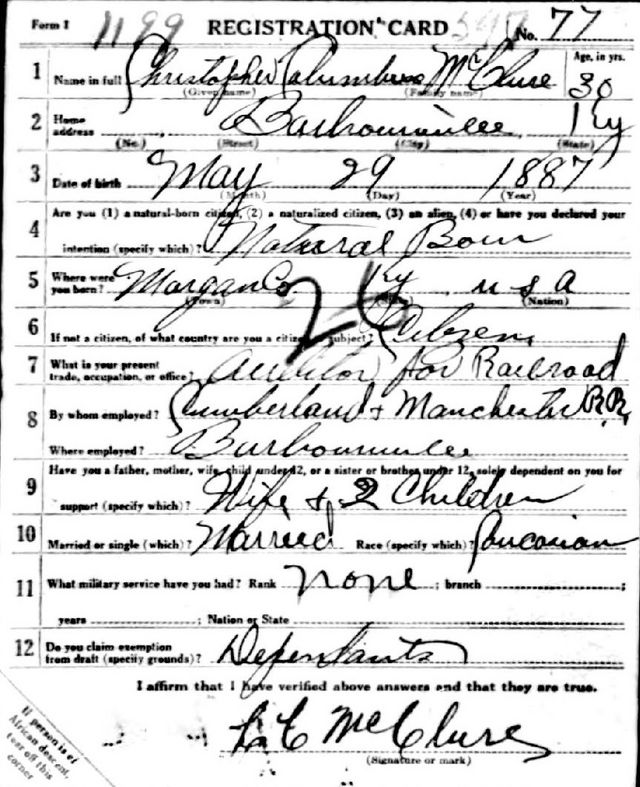 Form 1 1199 REGISTRATION CARD No. 77
1 Name in full Christopher Columbus McClure Age, in yrs. 30
(Given name) (Family name)
2 Home address Barbourville Ky
(No.) (Street) (City) (State)
3 Date of birth May 29 1887
(Month) (Day) (Year)
4 Are you (1) a natural-born citizen, (2) a naturalized citizen, (3) an alien, (4) or have you declared your
intention (specify which)? Natural Born
5 Where were you born? Morgan Co Ky U S A
(Town) (State) (Nation)
26
6 If not a citizen, of what country are you a citizen or subject? Citizen
7 What is your present trade, occupation, or office? Auditor for Railroad
8 By whom employed? Cumberland & Manchester R.R.
Where employed? Barbourville
9 Have you a father, mother, wife, child under 12, or a sister or brother under 12, solely dependent on you for
support (specify which)? Wife & 2 Children
10 Married or single (which)? Married Race (specify which)? Caucasian
11 What military service have you had? Rank none ; branch ;
years ; Nation or State
12 Do you claim exemption from draft (specify grounds)? Dependants
I affirm that I have verified above answers and that they are true.
McClure
(Signature or mark)
If person is of
African descent,
tear off this
corner